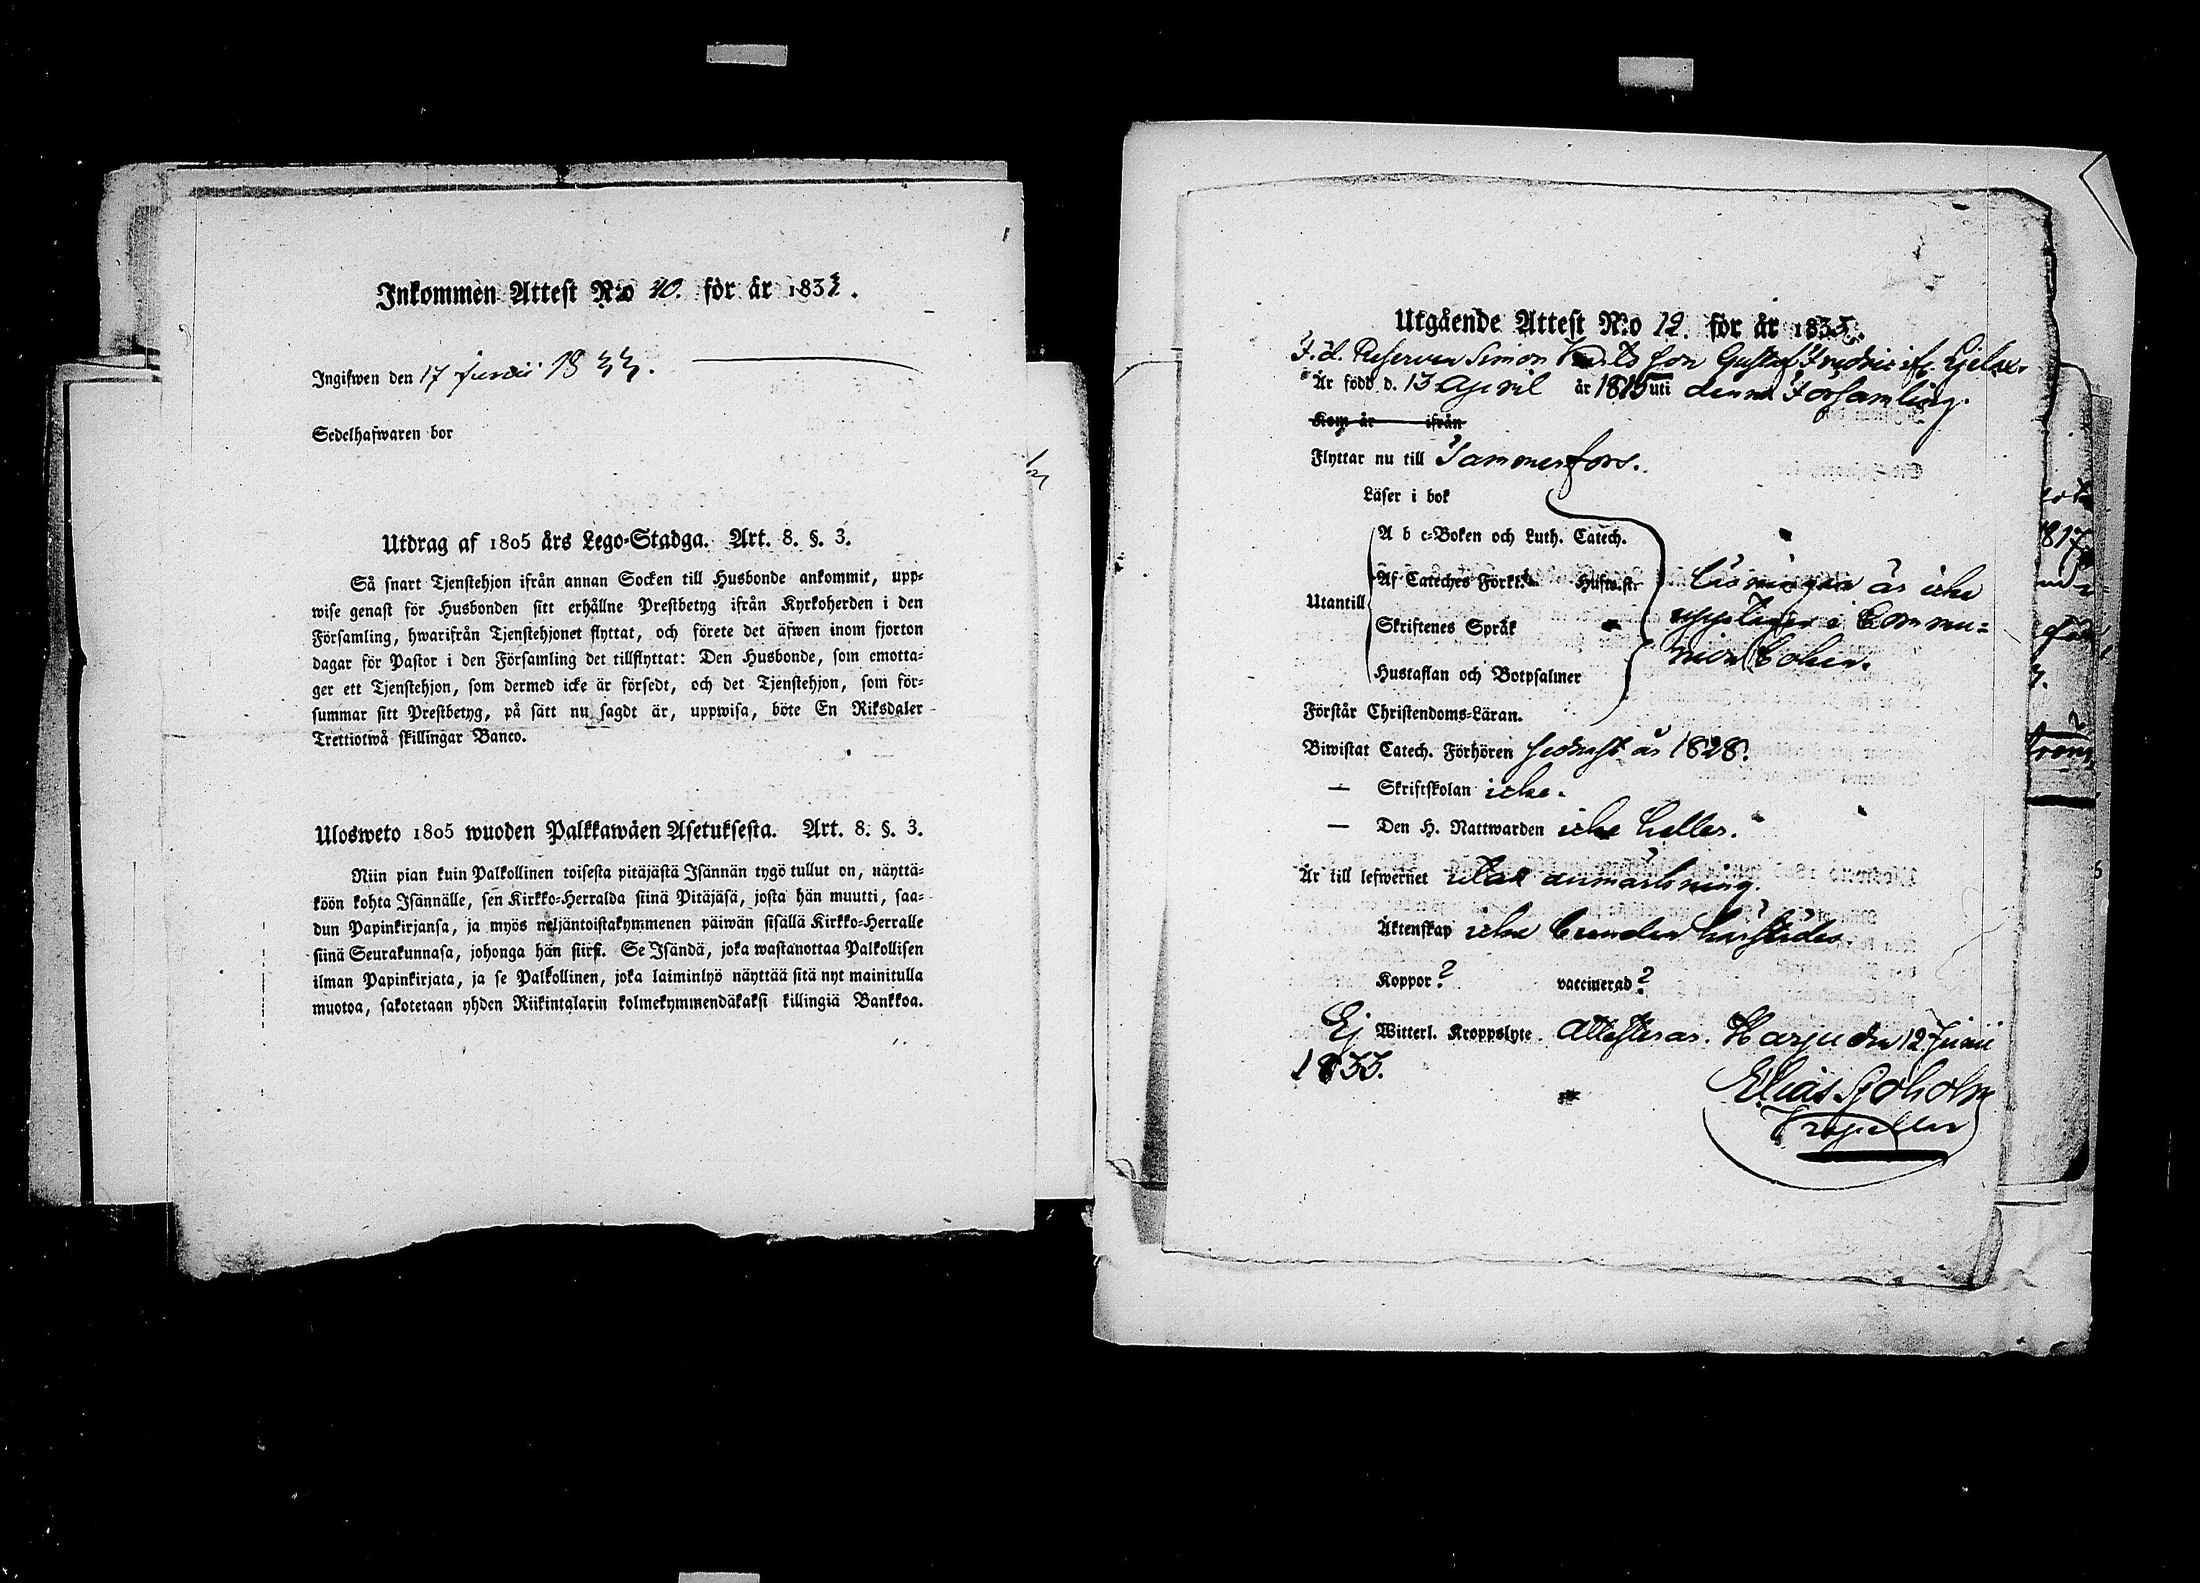 Inkommen Attest N:o 30. för år 1833.
Ingifwen den 17 Junii 1833.
Sedelhafwaren bor
Utdrag af 1805 års Lego-Stadga. Art. 8. §. 3.
Så snart Tjenstehjon ifrån annan Socken till Husbonde ankommit, upp-
wise genast för Husbonden sitt erhållne Prestbetyg ifrån Kyrkoherden i den
Församling, hwarifrån Tjenstehjonet flyttat, och förete det äfwen inom fjorton
dagar för Pastor i den Församling det tillflyttat: Den Husbonde, som emotta-
ger ett Tjenstehjon, som dermed icke är försedt, och det Tjenstehjon, som för-
summar sitt Prestbetyg, på sätt nu sagdt är, uppwisa, böte En Riksdaler
Trettiotwå skillingar Banco.
Ulosweto 1805 wuoden Palkkawäen Asetuksesta. Art. 8. §. 3.
Niin pian kuin Palkollinen toisesta pitäjästä Isännän tygö tullut on, näyttä-
köön kohta Isännälle, sen Kirkko-Herralda siinä Pitäjäsä, josta hän muutti, saa-
dun Papinkirjansa, ja myös neljäntoistakymmenen päiwän sisällä Kirkko-Herralle
siinä Seurakunnasa, johonga hän siirsi. Se Isändä, joka wastanottaa Palkollisen
ilman Papinkirjata, ja se Palkollinen, joka laiminlyö näyttää sitä nyt mainitulla
muotoa, sakotetaan yhden Riikintalarin kolmekymmendäkaksi killingiä Bankkoa.
Utgående Attest N:o 12. för år 1833.
F.d. Reserven Simon son Gustaf Fredric
Är född d. 13 April år 1815 uti denna Församling.
Kom år ifrån
Flyttar nu till Tammerfors.
Läser i bok
A b c-Boken och Luth. Catech.
Af Cateches Förkl. Hufw.st.
Utantill
Skriftenes Språk
Hustaflan och Botpsalmer
Läsningen är icke
upptagen i Commu-
nion boken.
Förstår Christendoms-Läran.
Biwistat Catech. Förhören sednast år 1828.
— Skriftskolan icke.
— Den H. Nattwarden icke heller.
Är till lefwernet utan anmärkning.
Äktenskap icke bunden härstädes.
Koppor? vaccinerad?
Ej Witterl. Kroppslyte. Attesteras. Harju den 12 Junii
1833.
Elias